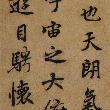 也天朗氣
宇宙之大俯
遊目騁懷